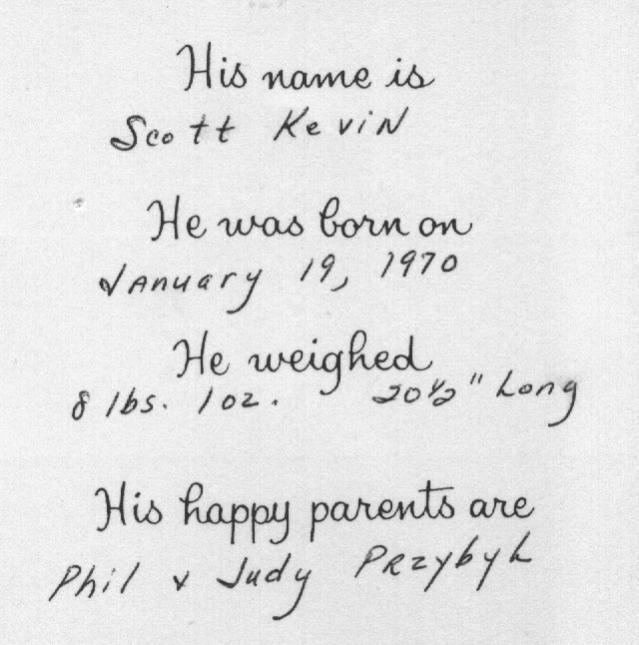 His name is
Scott Kevin
He was born on
January 19, 1970
He weighed
8 lbs. 1 oz. 20 1/2" Long
His happy parents are
Phil & Judy Przybyl